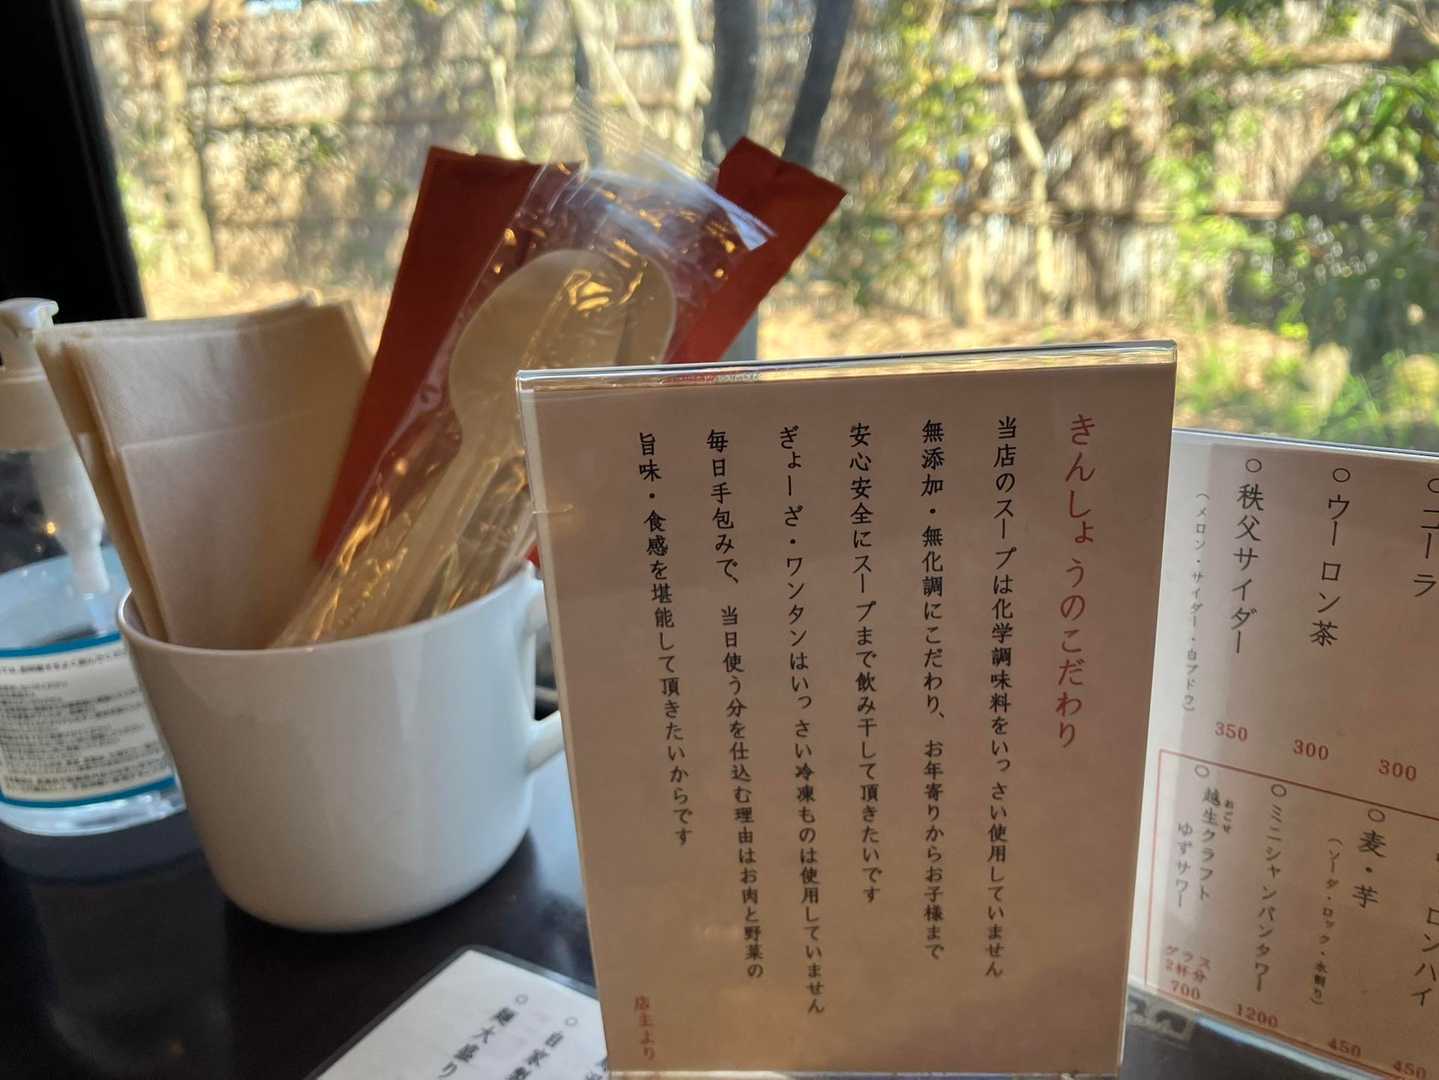 きんしょうのこだわり
当店のスープは化学調味料をいっさい使用していません
無添加・無化調にこだわり、お年寄りからお子様まで
安心安全にスープまで飲み干して頂きたいです
ぎょーざ・ワンタンはいっさい冷凍ものは使用していません
毎日手包みで、当日使う分を仕込む理由はお肉と野菜の
旨味・食感を堪能して頂きたいからです
店主より
○コーラ
300
○ウーロン茶
300
○秩父サイダー
(メロン・サイダー・白ブドウ)
350
ロンハイ
450
○麦・芋
(ソーダ・ロック・水割り)
450
○ミニシャンパンタワー
1200
○越生クラフト
おごせ
ゆずサワー
グラス
2杯分
700
○自家製
○麺大盛り